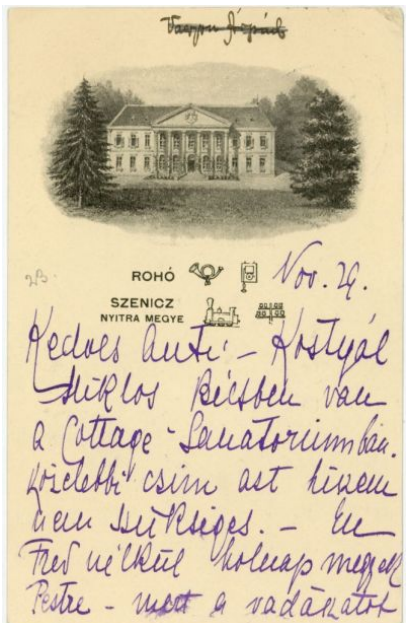 ROHÓ Nov. 29.
SZENICZ
NYITRA MEGYE
Kedves Anti – Kostyál
Miklos Bécsben van
a Cottage-Sanatoriumban.
Közelebbi csim ast hiszem
nem szükséges. – En
Fred nélkül holnap megyek
Pestre – mert a vadászatot